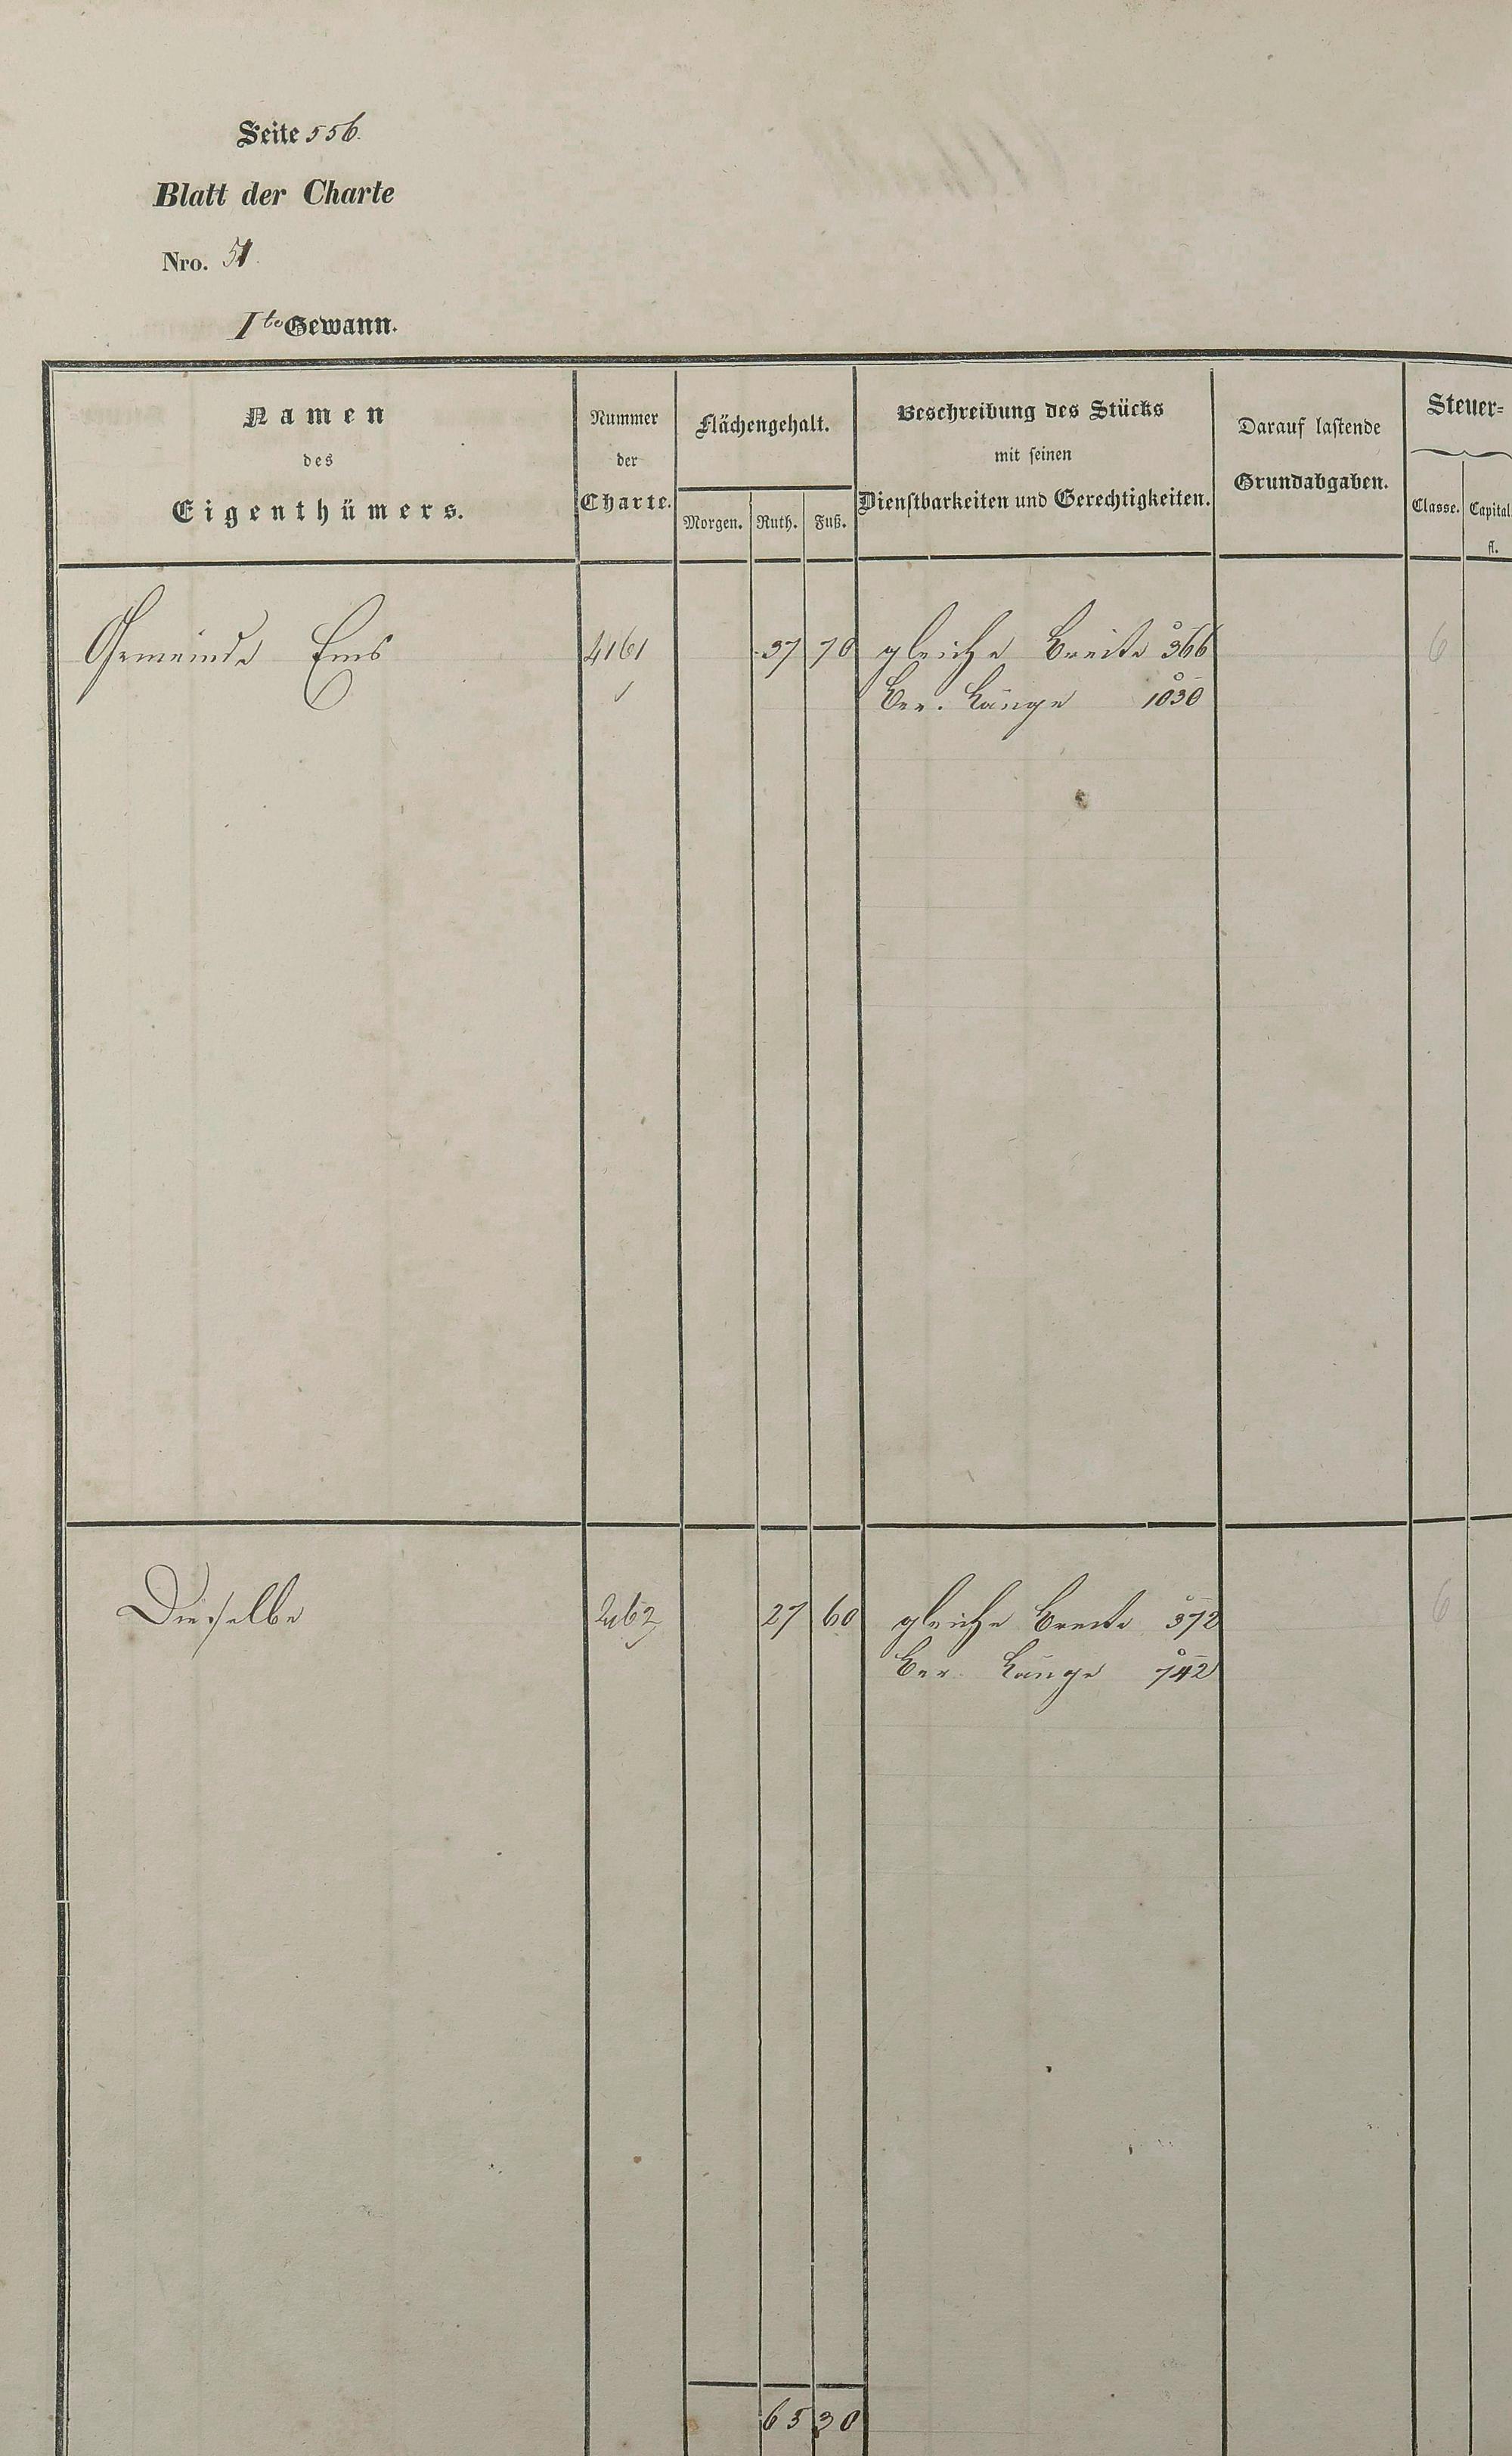 Seite 556.
Blatt der Charte
Nro. 51.
Ite Gewann.
Namen
des
Eigenthümers.
Nummer
der
Charte.
Flächengehalt.
Morgen. Ruth. Fuß.
Beschreibung des Stücks
mit seinen
Dienstbarkeiten und Gerechtigkeiten.
Darauf lastende
Grundabgaben.
Steuer=
Classe. Capital
fl.
Gemeinde Ems 4161 37 70 gleiche Breite 366 6
Ber. Länge 1030
Dieselbe 4162 27 60 gleiche Breite 372 6
Ber. Länge 742
65 30